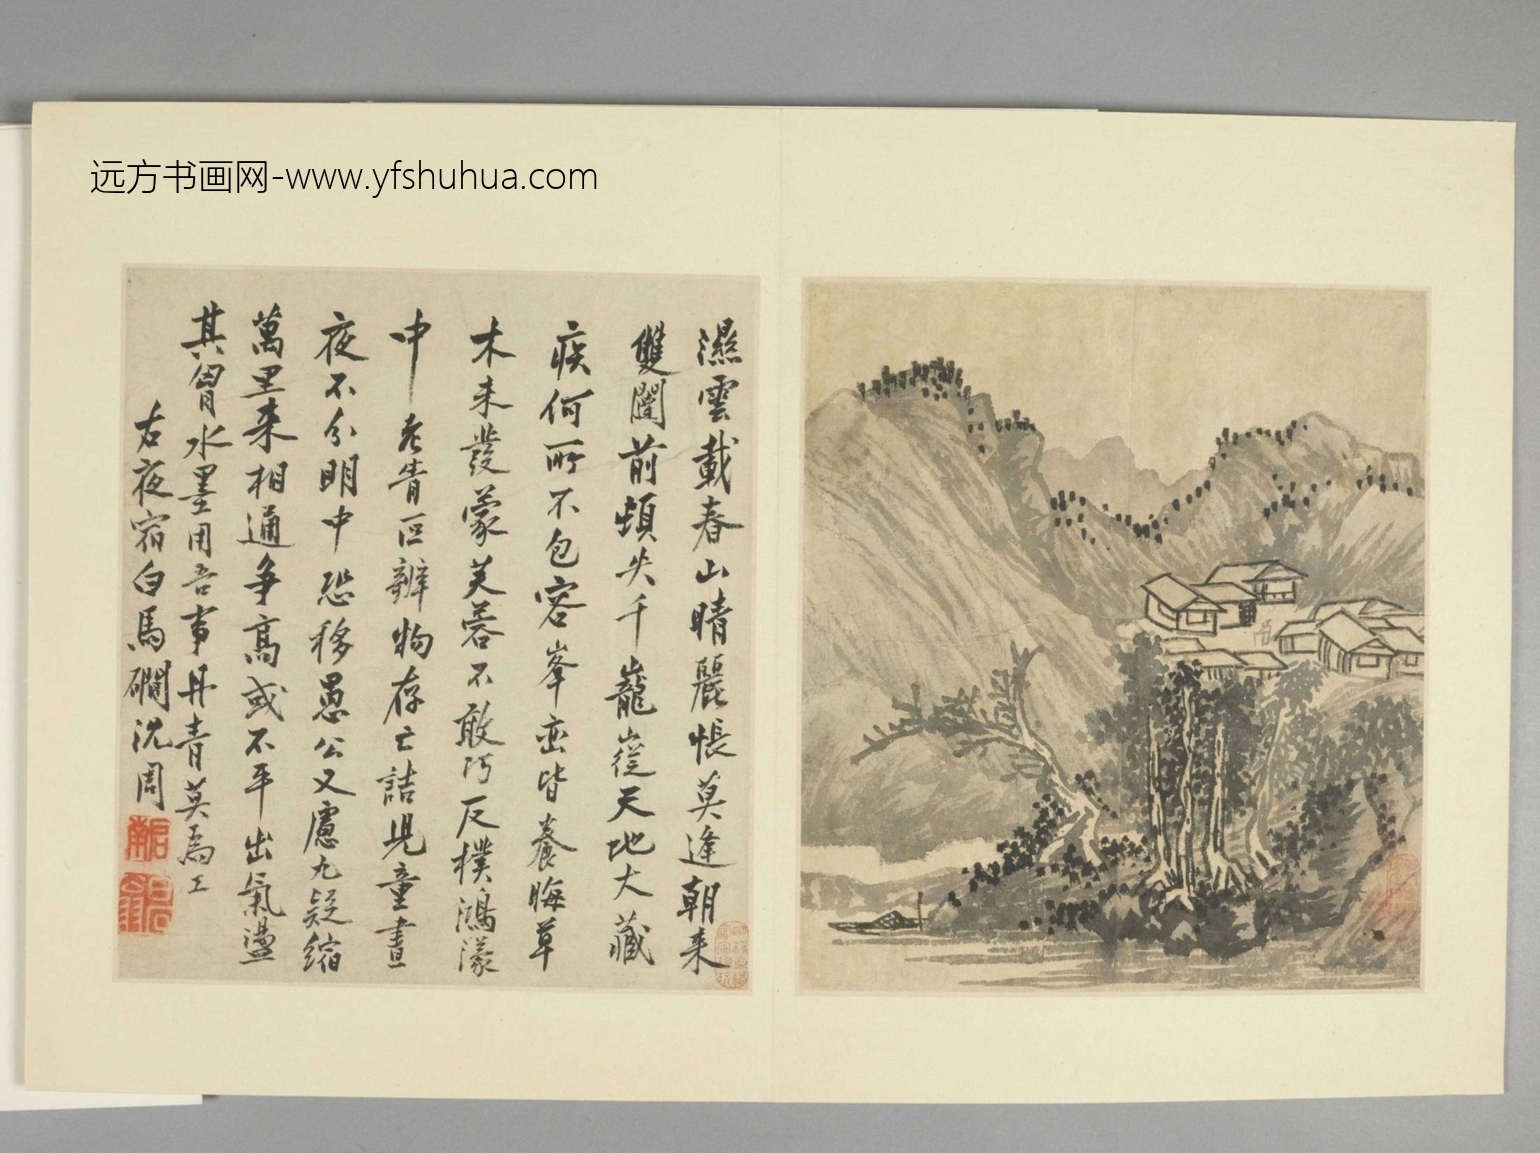 远方书画网-www.yfshuhua.com
濕雲載春山晴麗悵莫逢朝来
雙闥前頓失千巃嵷天地大藏
疾何所不包容峯巒皆養晦草
木未發蒙芙蓉不敢巧反樸鴻濛
中老青叵辨物存亡詰児童晝
夜不分明中恐移愚公又慮九疑縮
萬里来相通争高或不平出氣盪
其胷水墨用吾事丹青莫為工
右夜宿白馬磵沈周